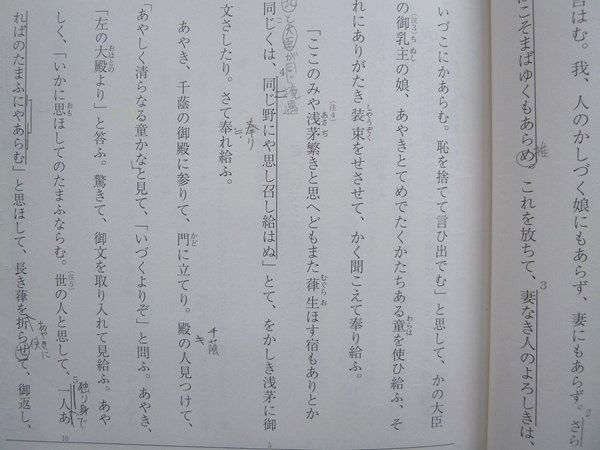 言はむ。我、人のかしづく娘にもあらず、妻にもあらず。さら
にこそまばゆくもあらめ。これを放ちて、妻なき人のよろしきは、
いづこにかあらむ。恥を捨てて言ひ出でむ」と思して、かの大臣
の御乳主の娘、あやきとてめでたくかたちある童を使ひ給ふ、そ
れにありがたき装束をせさせて、かく聞こえて奉り給ふ。
「ここのみや浅茅繁きと思へどもまた葎生ほす宿もありとか
同じくは、同じ野にや思し召し給はぬ」とて、をかしき浅茅に御
文さしたり。さて奉れ給ふ。
あやき、千蔭の御殿に参りて、門に立てり。殿の人見つけて、
「あやしく清らなる童かな」と見て、「いづくよりぞ」と問ふ。あやき、
「左の大殿より」と答ふ。驚きて、御文を取り入れて見給ふ。あや
しく、「いかに思ほしてのたまふならむ。世の人と思して、一人あ
ればのたまふにやあらむ」と思ほして、長き葎を折らせて、御返し、
2
3
4
5
10
(注3)
ちぬし
わらは
しやうぞく
(注4)
あさぢ
むぐらお
かど
おほとの
おも
(注5)
奉り
千蔭
独り身で
あやきに
使